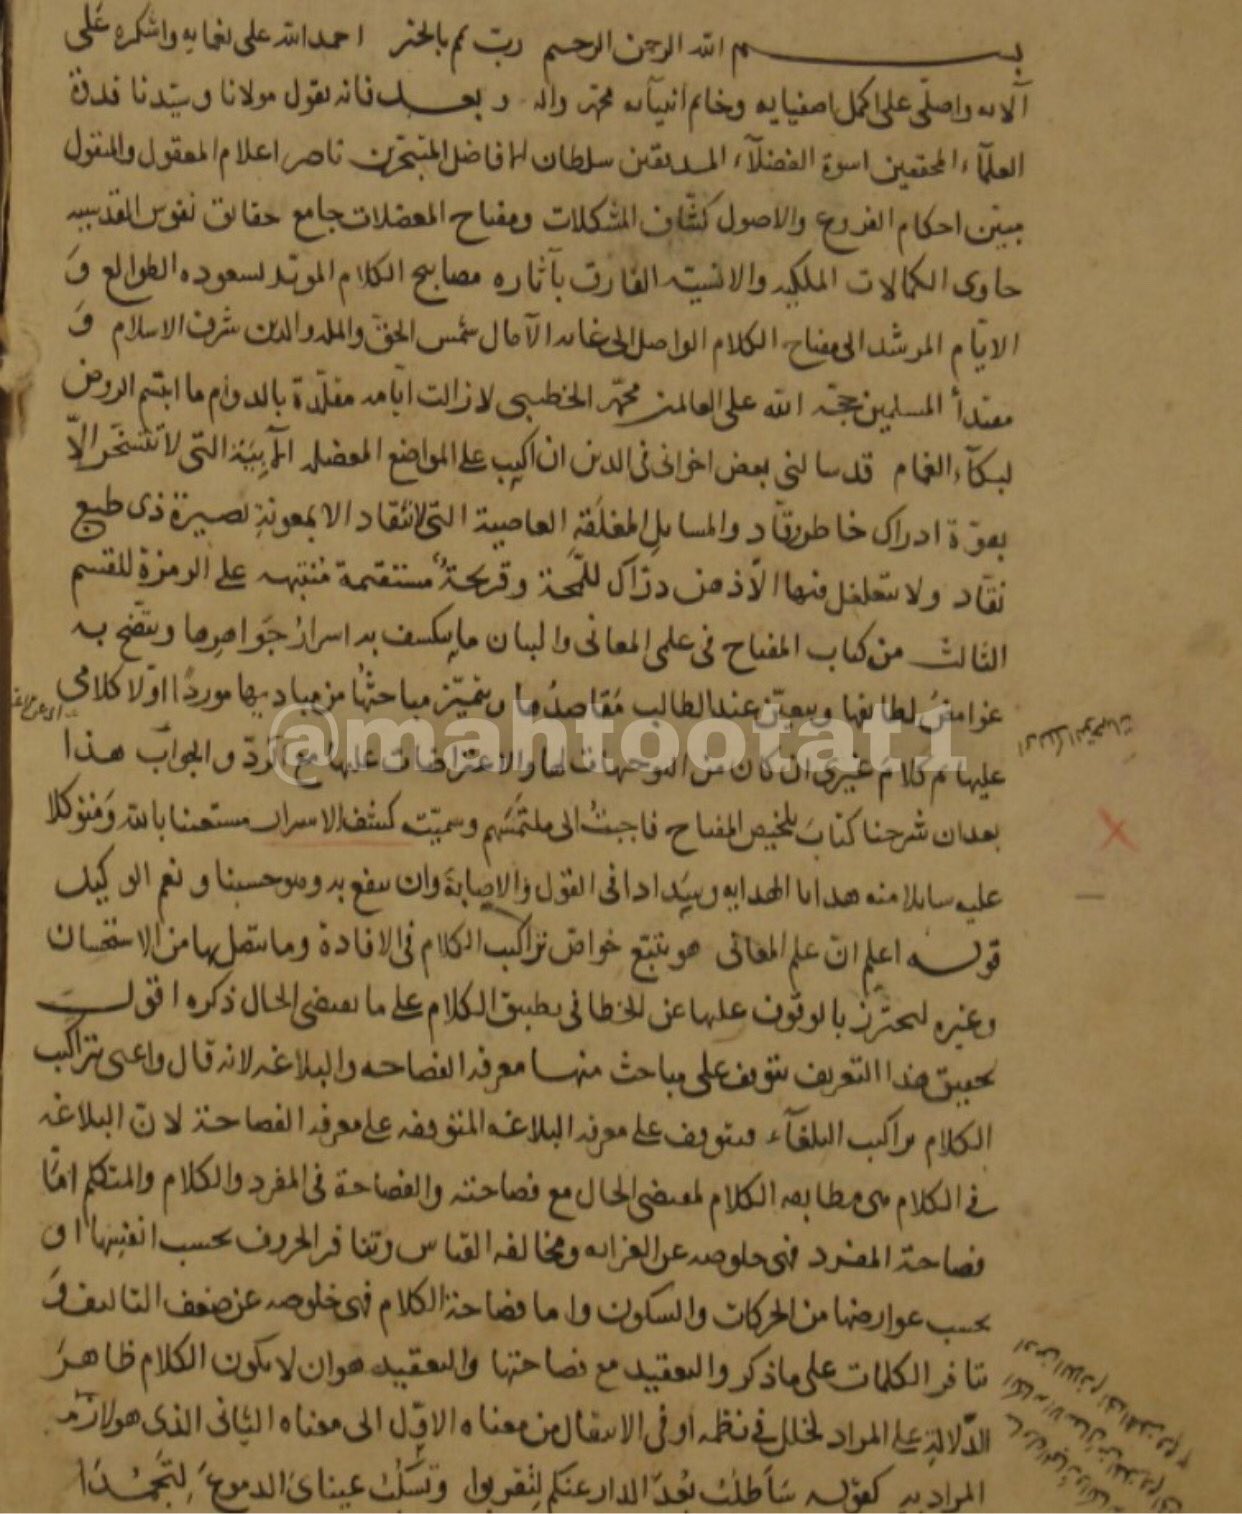 بسم الله الرحمن الرحيم رب تمم بالخير احمد الله على نعمايه واشكره على
آلايه واصلى على اكمل اصفيايه وخاتم انبيآيه محمد واله وبعد فانه يقول مولانا وسيدنا قدوة
العلمآء المحققين اسوة الفضلآء المدققين سلطان افاضل المتبحرين ناصر اعلام المعقول والمنقول
مبين احكام الفروع والاصول كشاف المشكلات ومفتاح المعضلات جامع حقائق نفوس القدسيه
حاوى الكمالات الملكيه والانسيه الفارق بآثاره مصابيح الكلام المويد لسعوده الطوالع و
الايام المرشد الى مفتاح الكلام الواصل الى غايه الآمال شمس الحق والمله والدين شرف الاسلام و
مقتدأ المسلمين حجه الله على العالمين محمد الخطيبى لا زالت ايامه مقلدة بالدوام ما ابتسم الروض
لبكآء الغمام قد سالنى بعض اخوانى فى الدين ان اكتب على المواضع المعضله الآبية التى لا تتسخر الا
بقوة ادراك خاطر وقاد والمسايل المغلقة العاصية التى لا تنقاد الا بمعونة بصيرة ذى طبع
نقاد ولا يتغلغل فيها الا ذهن دراك للمحة وقريحة مستقيمة منتبهه على الرمزة للقسم
الثالث من كتاب المفتاح فى علمى المعانى والبيان ما ينكشف به اسرار جواهرها ويتضح به
غوامض لطائفها ويتعين عند الطالب مقاصدها ويتميز مباحثها من مباديها موردا اولا كلامى
عليها ثم كلام غيرى ان كان من التوجيهات لها والاعتراضات عليها مع الرد والجواب هذا
بعد ان شرحنا كتاب تلخيص المفتاح فاجبت الى ملتمسهم وسميت كشف الاسرار مستعينا بالله ومتوكلا
عليه سايلا منه هدانا الهدايه وسدادا فى القول والاصابة وان ينفع به وهو حسبنا ونعم الوكيل
قوله اعلم ان علم المعانى هو تتبع خواص تراكيب الكلام فى الافادة وما يتصل بها من الاستحسان
وغيره ليحترز بالوقوف عليها عن الخطا فى تطبيق الكلام على ما يقتضى الحال ذكره اقول
تحقيق هذا التعريف يتوقف على مباحث منها معرفه الفصاحه والبلاغه لانه قال واعنى بتراكيب
الكلام تراكيب البلغآء فيتوقف على معرفه البلاغه المتوقفه على معرفه الفصاحة لان البلاغه
فى الكلام هى مطابقه الكلام لمقتضى الحال مع فصاحته والفصاحة فى المفرد والكلام والمتكلم اما
فصاحة المفرد فهى خلوصه عن الغرابه ومخالفه القياس وتنافر الحروف بحسب انفسها او
بحسب عوارضها من الحركات والسكون واما فصاحة الكلام فهى خلوصه عن ضعف التاليف و
تنافر الكلمات على ما ذكر والتعقيد مع فصاحتها والتعقيد هو ان لا يكون الكلام ظاهر
الدلالة على المراد لخلل فى نظمه او فى الانتقال من معناه الاول الى معناه الثانى الذى هو لازمه
المراد به كقوله ساطلب بعد الدار عنكم لتقربوا وتسكب عيناى الدموع لتجمدا
@mahtootat1